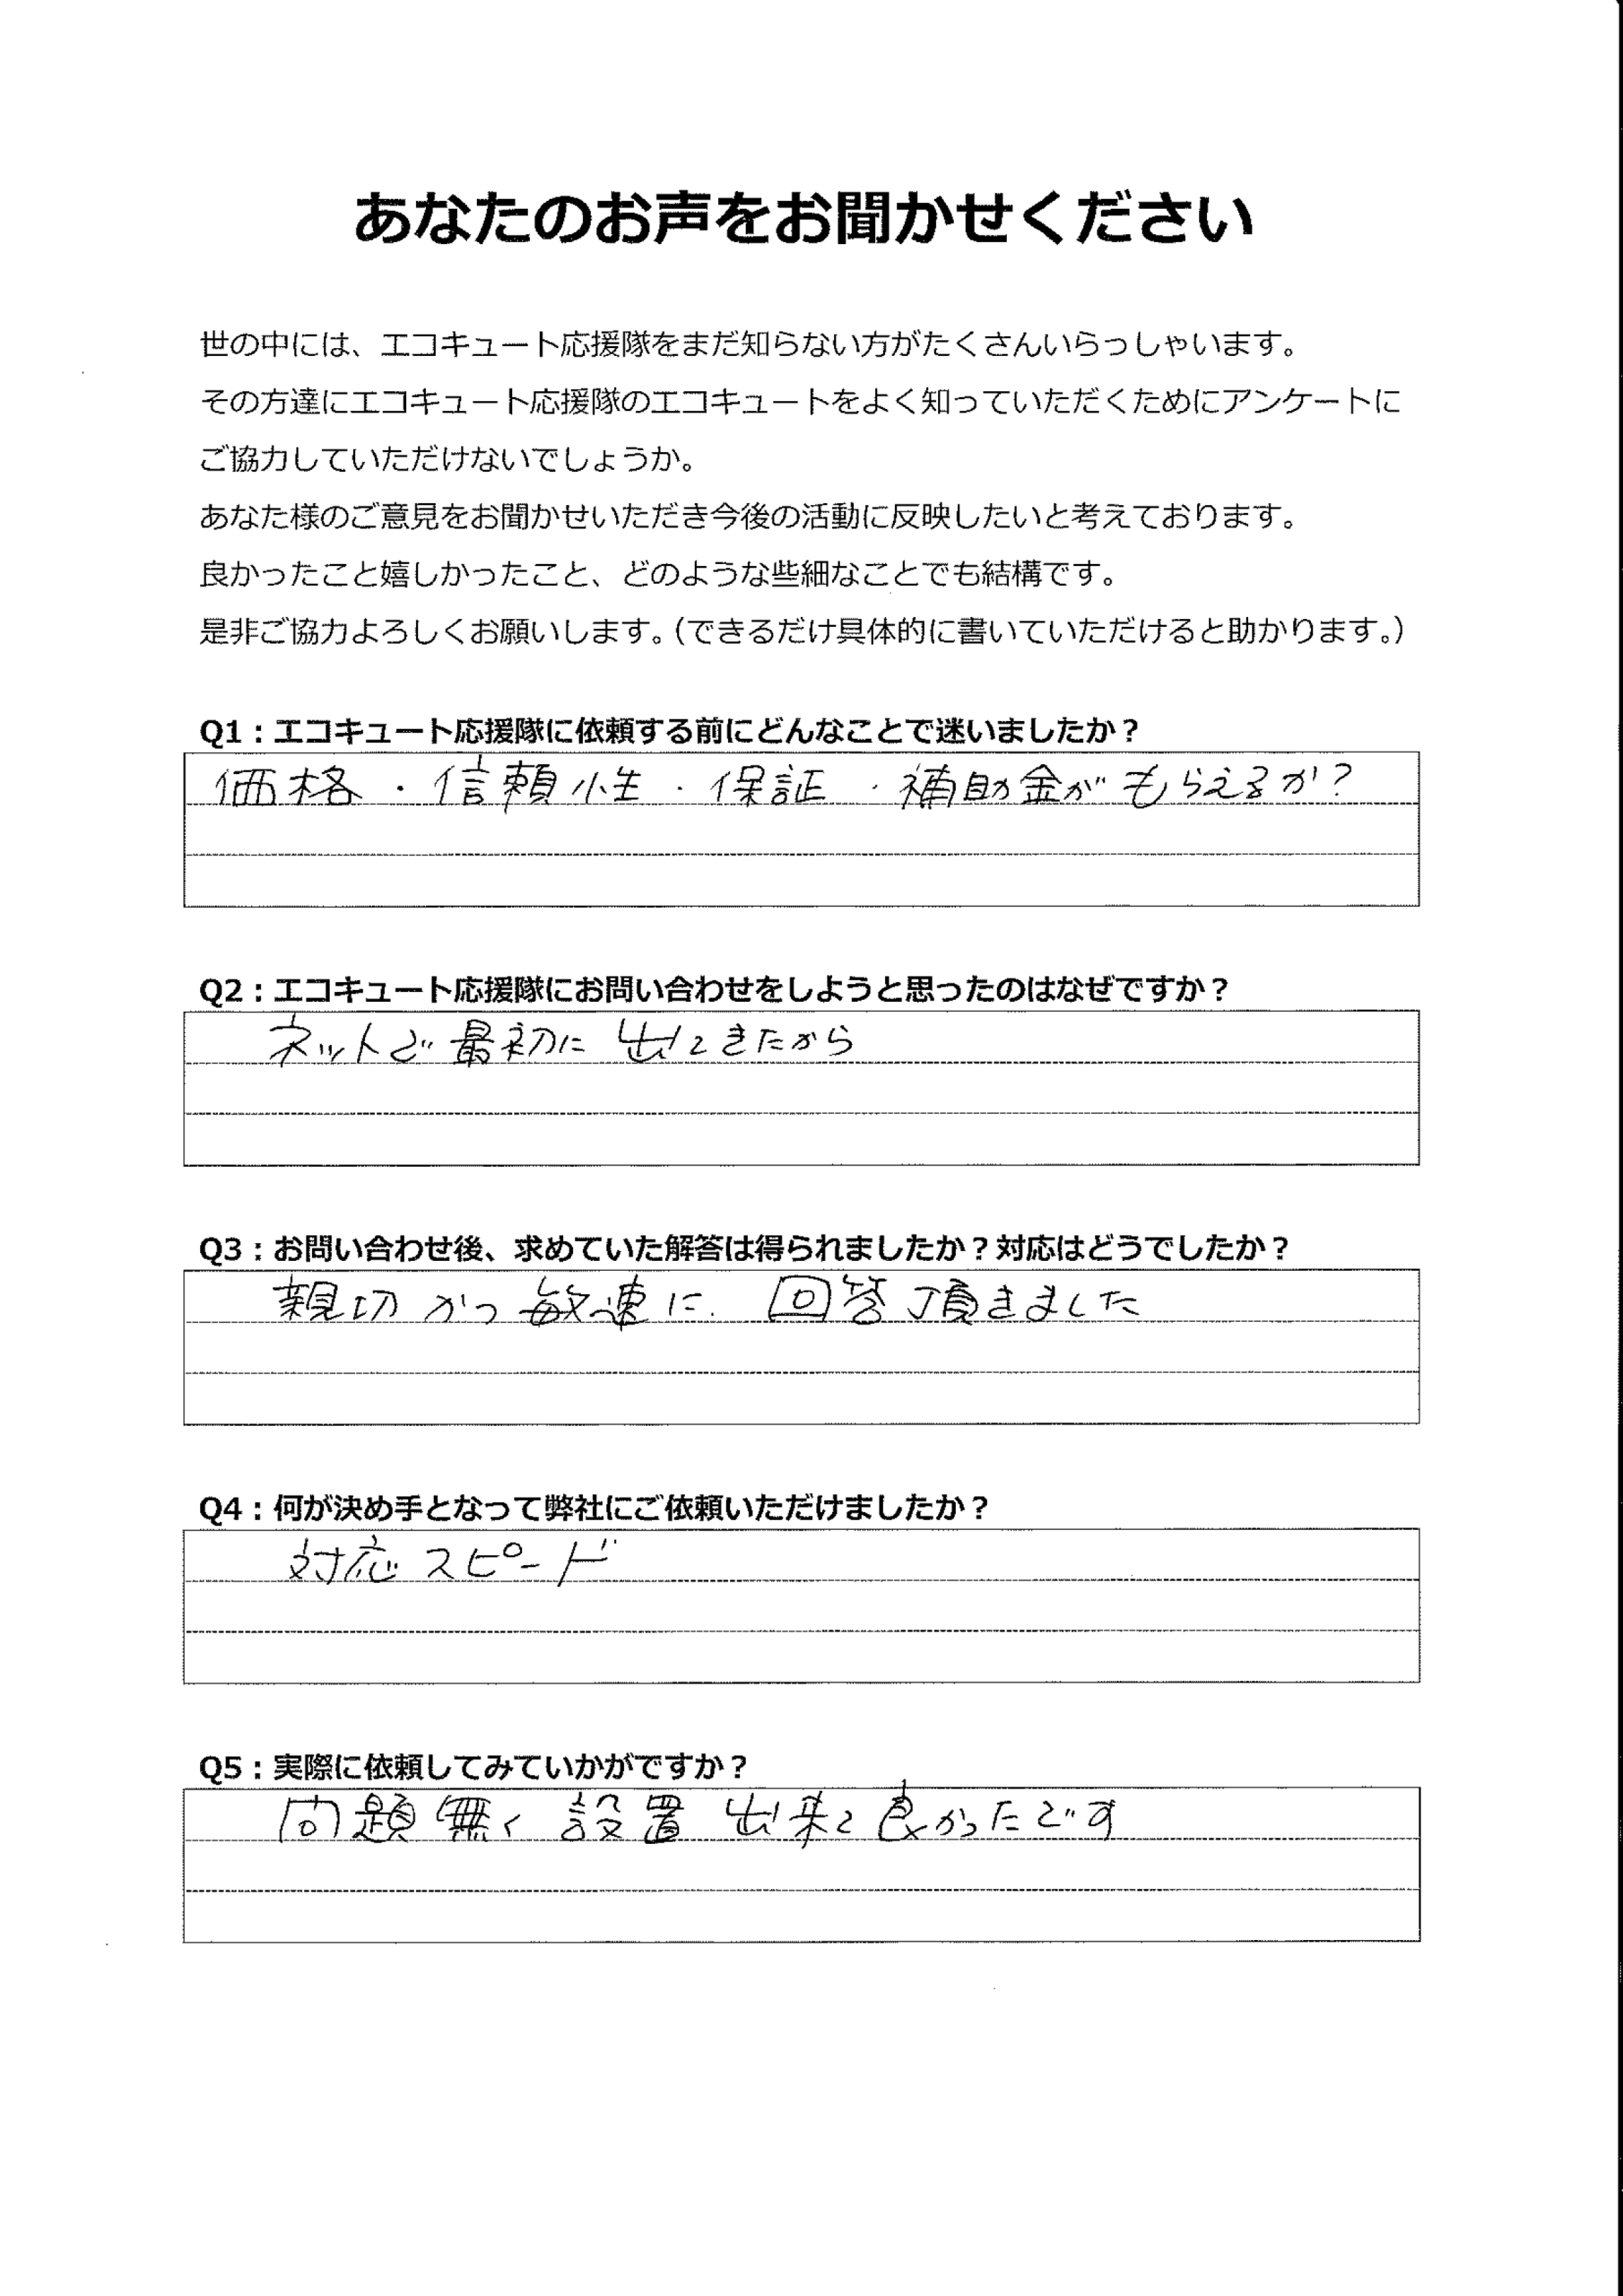 あなたのお声をお聞かせください
世の中には、エコキュート応援隊をまだ知らない方がたくさんいらっしゃいます。
その方達にエコキュート応援隊のエコキュートをよく知っていただくためにアンケートに
ご協力していただけないでしょうか。
あなた様のご意見をお聞かせいただき今後の活動に反映したいと考えております。
良かったこと嬉しかったこと、どのような些細なことでも結構です。
是非ご協力よろしくお願いします。（できるだけ具体的に書いていただけると助かります。）
Q1：エコキュート応援隊に依頼する前にどんなことで迷いましたか？
価格・信頼性・保証・補助金がもらえるか?
Q2：エコキュート応援隊にお問い合わせをしようと思ったのはなぜですか？
ネットで最初に出てきたから
Q3：お問い合わせ後、求めていた解答は得られましたか？対応はどうでしたか？
親切かつ敏速に.回答頂きました
Q4：何が決め手となって弊社にご依頼いただけましたか？
対応スピード
Q5：実際に依頼してみていかがですか？
問題無く設置出来て良かったです